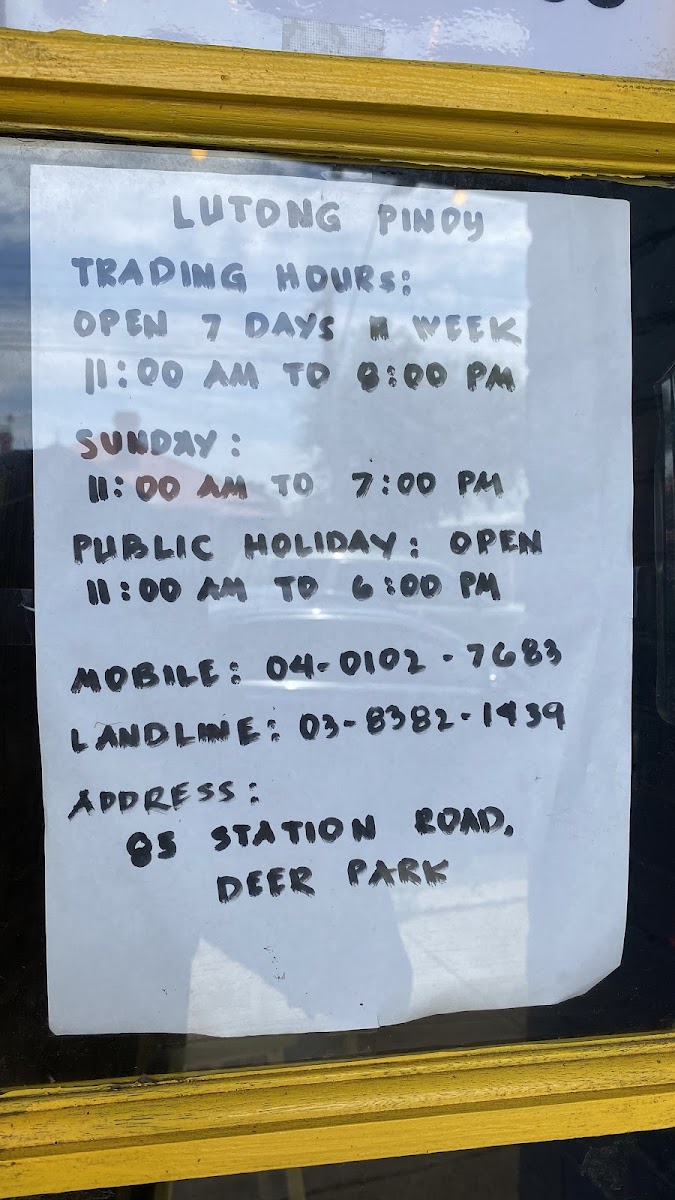 LUTONG PINOY
TRADING HOURS:
OPEN 7 DAYS A WEEK
11:00 AM TO 8:00 PM
SUNDAY:
11:00 AM TO 7:00 PM
PUBLIC HOLIDAY: OPEN
11:00 AM TO 6:00 PM
MOBILE: 04-0102-7683
LANDLINE: 03-8382-1439
ADDRESS:
85 STATION ROAD,
DEER PARK